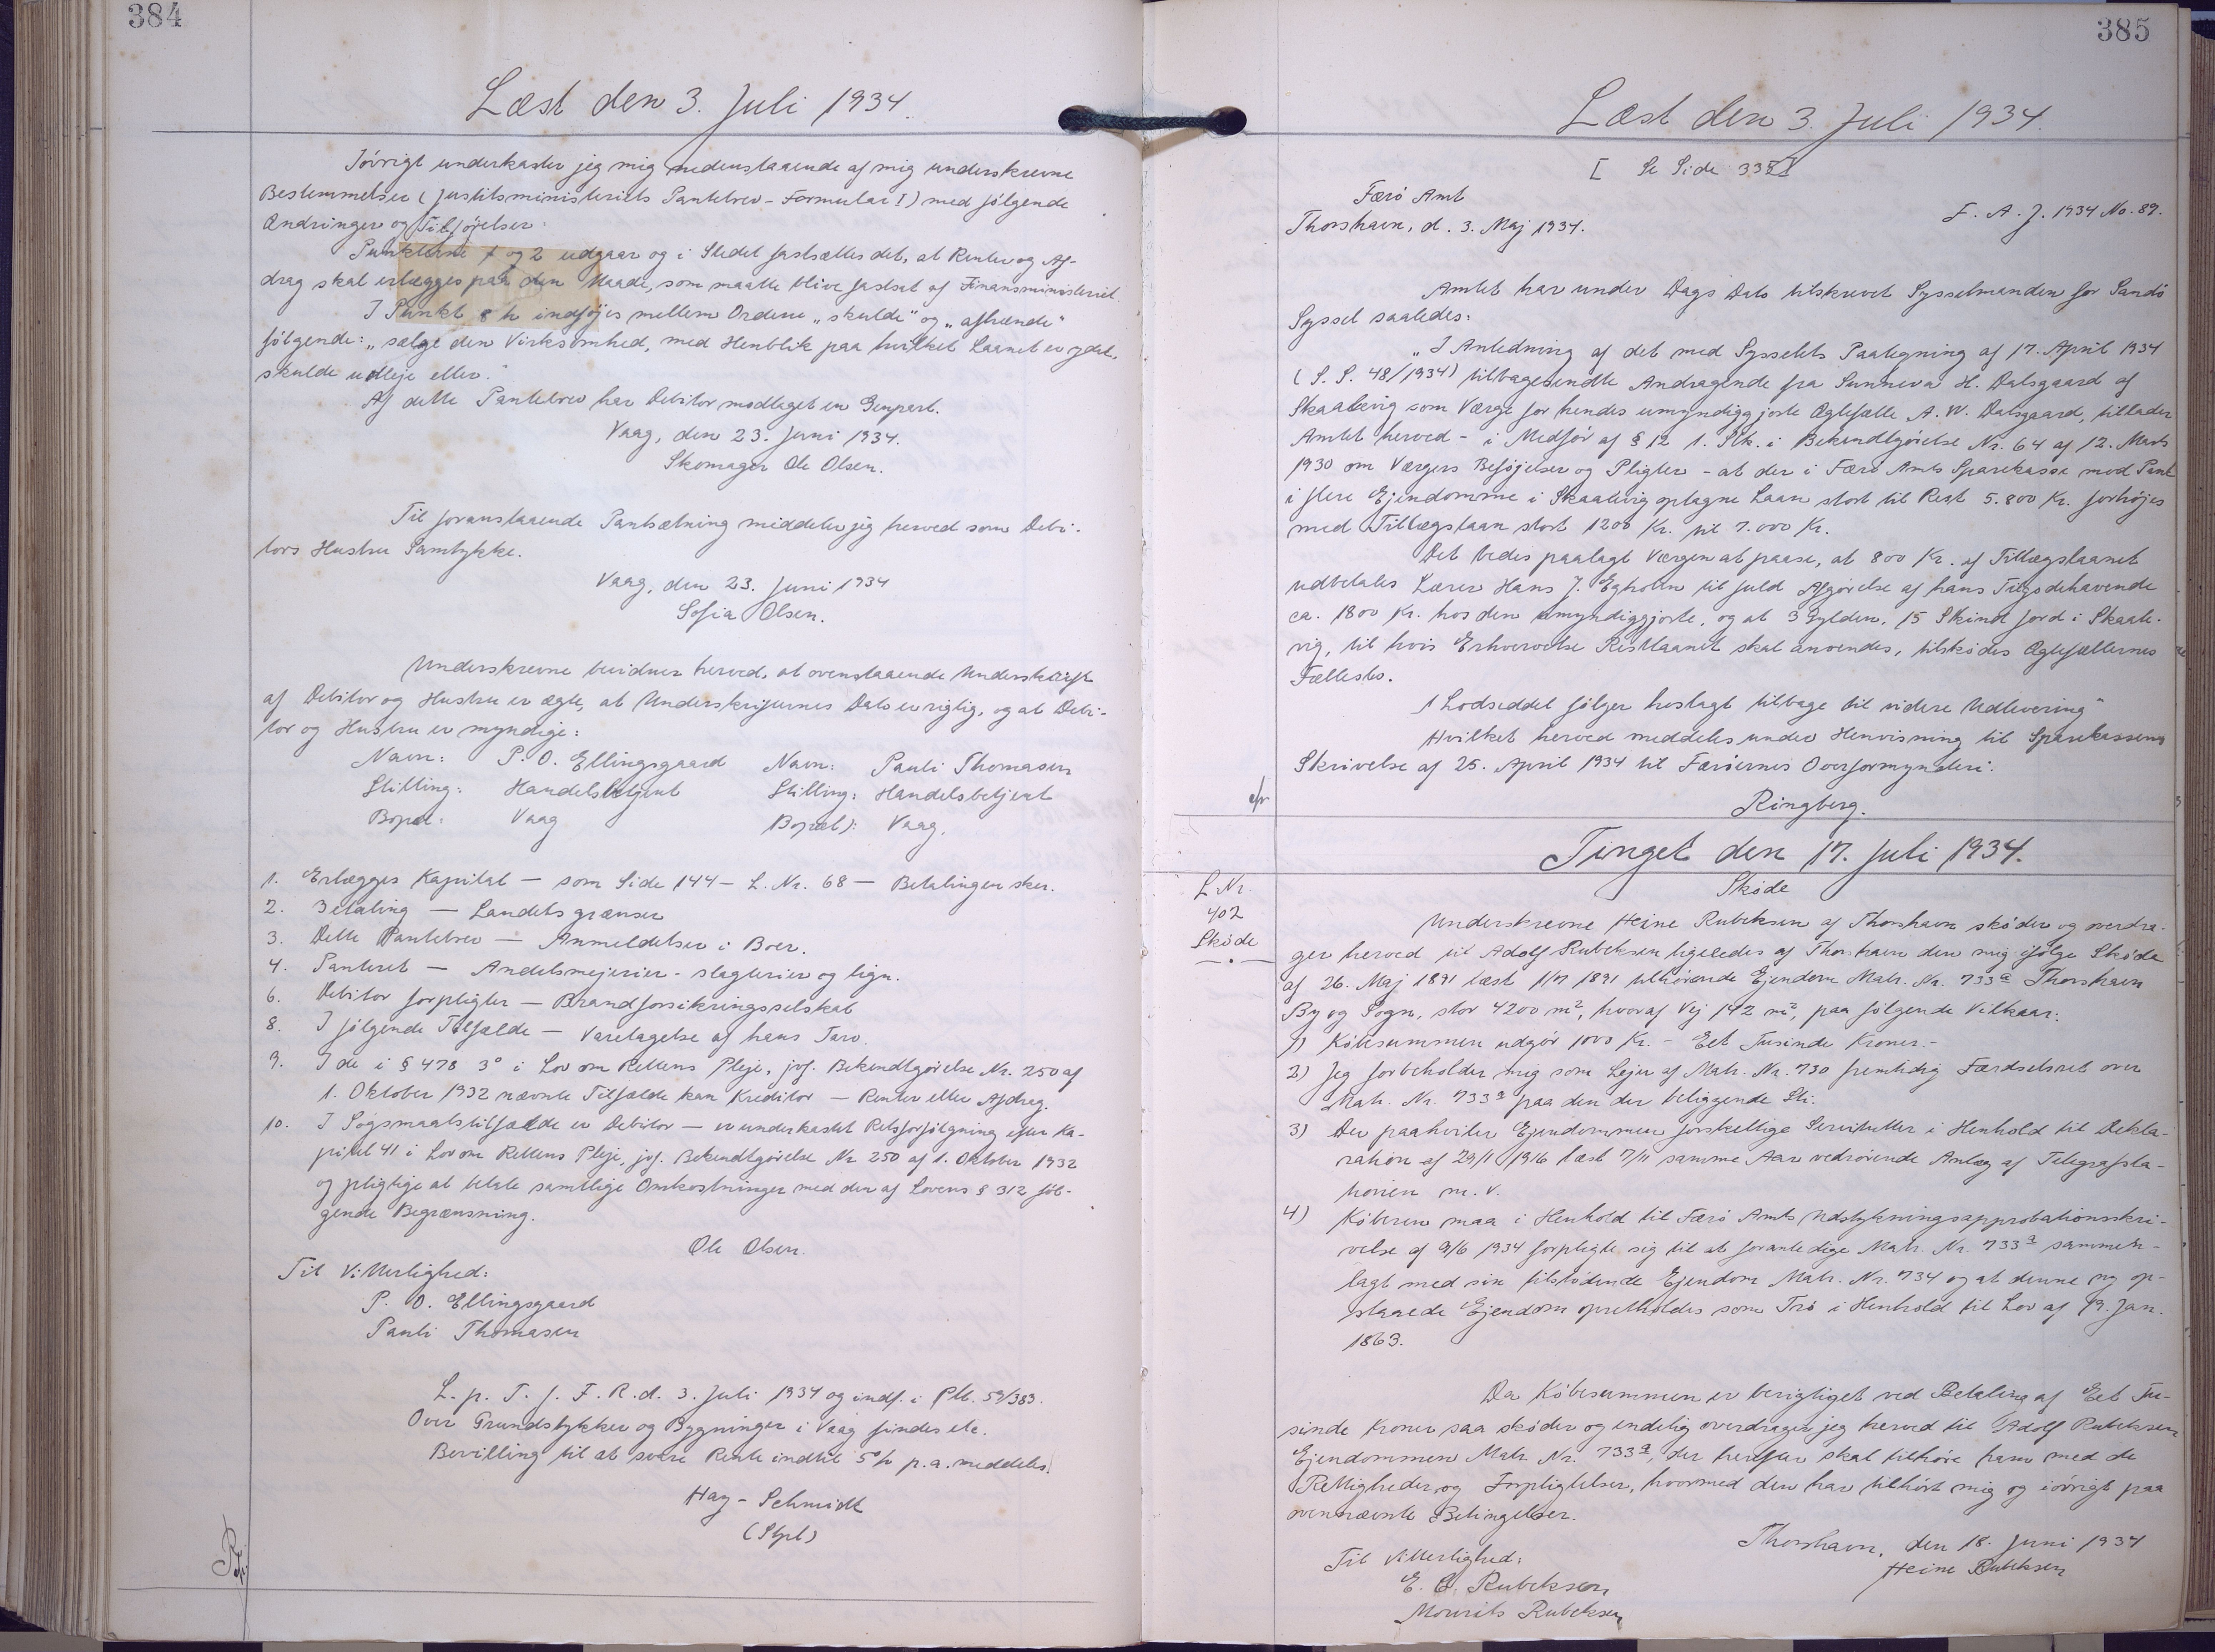 384
Læst den 3. Juli 1934.
Iövrigt underkaster jeg mig nedenstaaende af mig underskrevne
Bestemmelser (Justitsministeriets Pantebrev-Formular I) med følgende
Ændringer og Tilføjelser:
Punkterne 1 og 2 udgaar og i Stedet fastsættes det, at Renter og Af-
drag skal erlægges paa den Maade, som maatte blive fastsat af Finansministeriet.
I Punkt 8 h indføjes mellem Ordene „skulde" og „afhænde"
følgende: „sælge den Virksomhed, med Henblik paa hvilket Laanet er ydet,
skulde udleje eller."
Af dette Pantebrev har Debitor modtaget en Genpart.
Vaag, den 23. Juni 1934.
Skomager Ole Olsen.
Til foranstaaende Pantsætning meddeler jeg herved som Debi-
tors Hustru Samtykke.
Vaag, den 23. Juni 1934
Sofia Olsen.
Underskrevne bevidner herved, at ovenstaaende Underskrift
af Debitor og Hustru er ægte, at Underskrifternes Dato er rigtig, og at Debi-
tor og Hustru er myndige:
Navn: P. O. Ellingsgaard Navn: Pauli Thomasen
Stilling: Handelsbetjent Stilling: Handelsbetjent
Bopæl: Vaag Bopæl: Vaag.
1. Erlægges Kapital — som Side 144 — L. Nr. 68 — Betalingen sker.
2. Betaling — Landets grænser
3. Dette Pantebrev — Anmeldelser i Boer.
4. Panteret — Andelsmejerier - slagterier og lign.
6. Debitor forpligter — Brandforsikringsselskab
8. I følgende Tilfælde — Varetagelse af hans Tarv.
9. I de i § 478 3° i Lov om Rettens Pleje, jvf. Bekendtgørelse Nr. 250 af
1. Oktober 1932 nævnte Tilfælde kan Kreditor — Renter eller Afdrag.
10. I Søgsmaalstilfælde er Debitor — er underkastet Retsforfølgning efter Ka-
pitel 41 i Lov om Rettens Pleje, jvf. Bekendtgørelse Nr 250 af 1. Oktober 1932
og pligtige at betale samtlige Omkostninger med den af Lovens § 312 føl-
gende Begrænsning.
Ole Olsen.
Til Vitterlighed:
P. O. Ellingsgaard
Pauli Thomasen
L. p. T. f. F. R. d. 3. Juli 1934 og indf. i Ptb. 59/383.
Over Grundstykker og Bygninger i Vaag findes etc.
Bevilling til at svare Rente indtil 5% p.a. meddeles.
Hay-Schmidt
(Stpl)
385
Læst den 3. Juli 1934.
[ Se Side 338]
Færö Amt
Thorshavn, d. 3. Maj 1934.
F. A. J. 1934 No. 89.
Amtet har under Dags Dato tilskrevet Sysselmanden for Sandö
Syssel saaledes:
„I Anledning af det med Sysselets Paategning af 17. April 1934
(S. S. 48/1934) tilbagesendte Andragende fra Sunneva H. Dalsgaard af
Skaalevig som Værge for hendes umyndiggjorte Ægtefælle A. W. Dalsgaard, tillader
Amtet herved - i Medför af § 12 1. Stk. i Bekendtgörelse Nr. 64 af 12. Marts
1930 om Værgers Beföjelser og Pligter - at der i Færö Amts Sparekasse mod Pant
i flere Ejendomme i Skaalevig optagne Laan stort til Rest 5.800 Kr. forhöjes
med Tillægslaan stort 1200 Kr. til 7.000 Kr.
Det bedes paalagt Værgen at paase, at 800 Kr. af Tillægslaanet
udbetales Lærer Hans J. Egholm til fuld Afgörelse af hans Tilgodehavende
ca. 1800 Kr. hos den umyndiggjorte, og at 3 Gylden, 15 Skind Jord i Skaale-
vig, til hvis Erhvervelse Restlaanet skal anvendes, tilsködes Ægtefællernes
Fællesbo.
1 Lodseddel fölger hoslagt tilbage til videre Udlevering"
Hvilket herved meddeles under Henvisning til Sparekassens
Skrivelse af 25. April 1934 til Færöernes Overformynderi.
Ringberg.
Tinget den 17. Juli 1934.
L. Nr
402
Sköde
Sköde
Underskrevne Heine Rubeksen af Thorshavn sköder og overdra-
ger herved til Adolf Rubeksen ligeledes af Thorshavn den mig ifölge Sköde
af 26. Maj 1891 læst 1/7 1891 tilhörende Ejendom Matr. Nr. 733ª Thorshavn
By og Sogn, stor 4200 m², hvoraf Vej 142 m², paa fölgende Vilkaar:
1) Köbesummen udgör 1000 Kr. - Eet Tusinde Kroner.-
2) Jeg forbeholder mig som Ejer af Matr. Nr. 730 fremtidig Færdselsret over
Matr. Nr. 733ª paa den der beliggende Sti.
3) Der paahviler Ejendommen forskellige Servitutter i Henhold til Dekla-
ration af 29/11 1916 læst 7/11 samme Aar vedrörende Anlæg af Telegrafsta-
tionen m. v.
4) Köberen maa i Henhold til Færö Amts Udstykningsapprobationsskri-
velse af 9/6 1934 forpligte sig til at foranledige Matr. Nr. 733ª sammen-
lagt med sin tilstödende Ejendom Matr. Nr. 734 og at denne ny op-
staaede Ejendom opretholdes som Trö i Henhold til Lov af 13. Jan.
1863.
Da Köbesummen er berigtiget ved Betaling af Eet Tu-
sinde Kroner saa sköder og endelig overdrager jeg herved til Adolf Rubeksen
Ejendommen Matr. Nr. 733ª, der herefter skal tilhöre ham med de
Rettigheder og Forpligtelser, hvormed den har tilhört mig og iövrigt paa
ovennævnte Betingelser.
Thorshavn, den 18. Juni 1934
Heine Rubeksen
Til Vitterlighed:
Rubeksen
Mourits Rubeksen